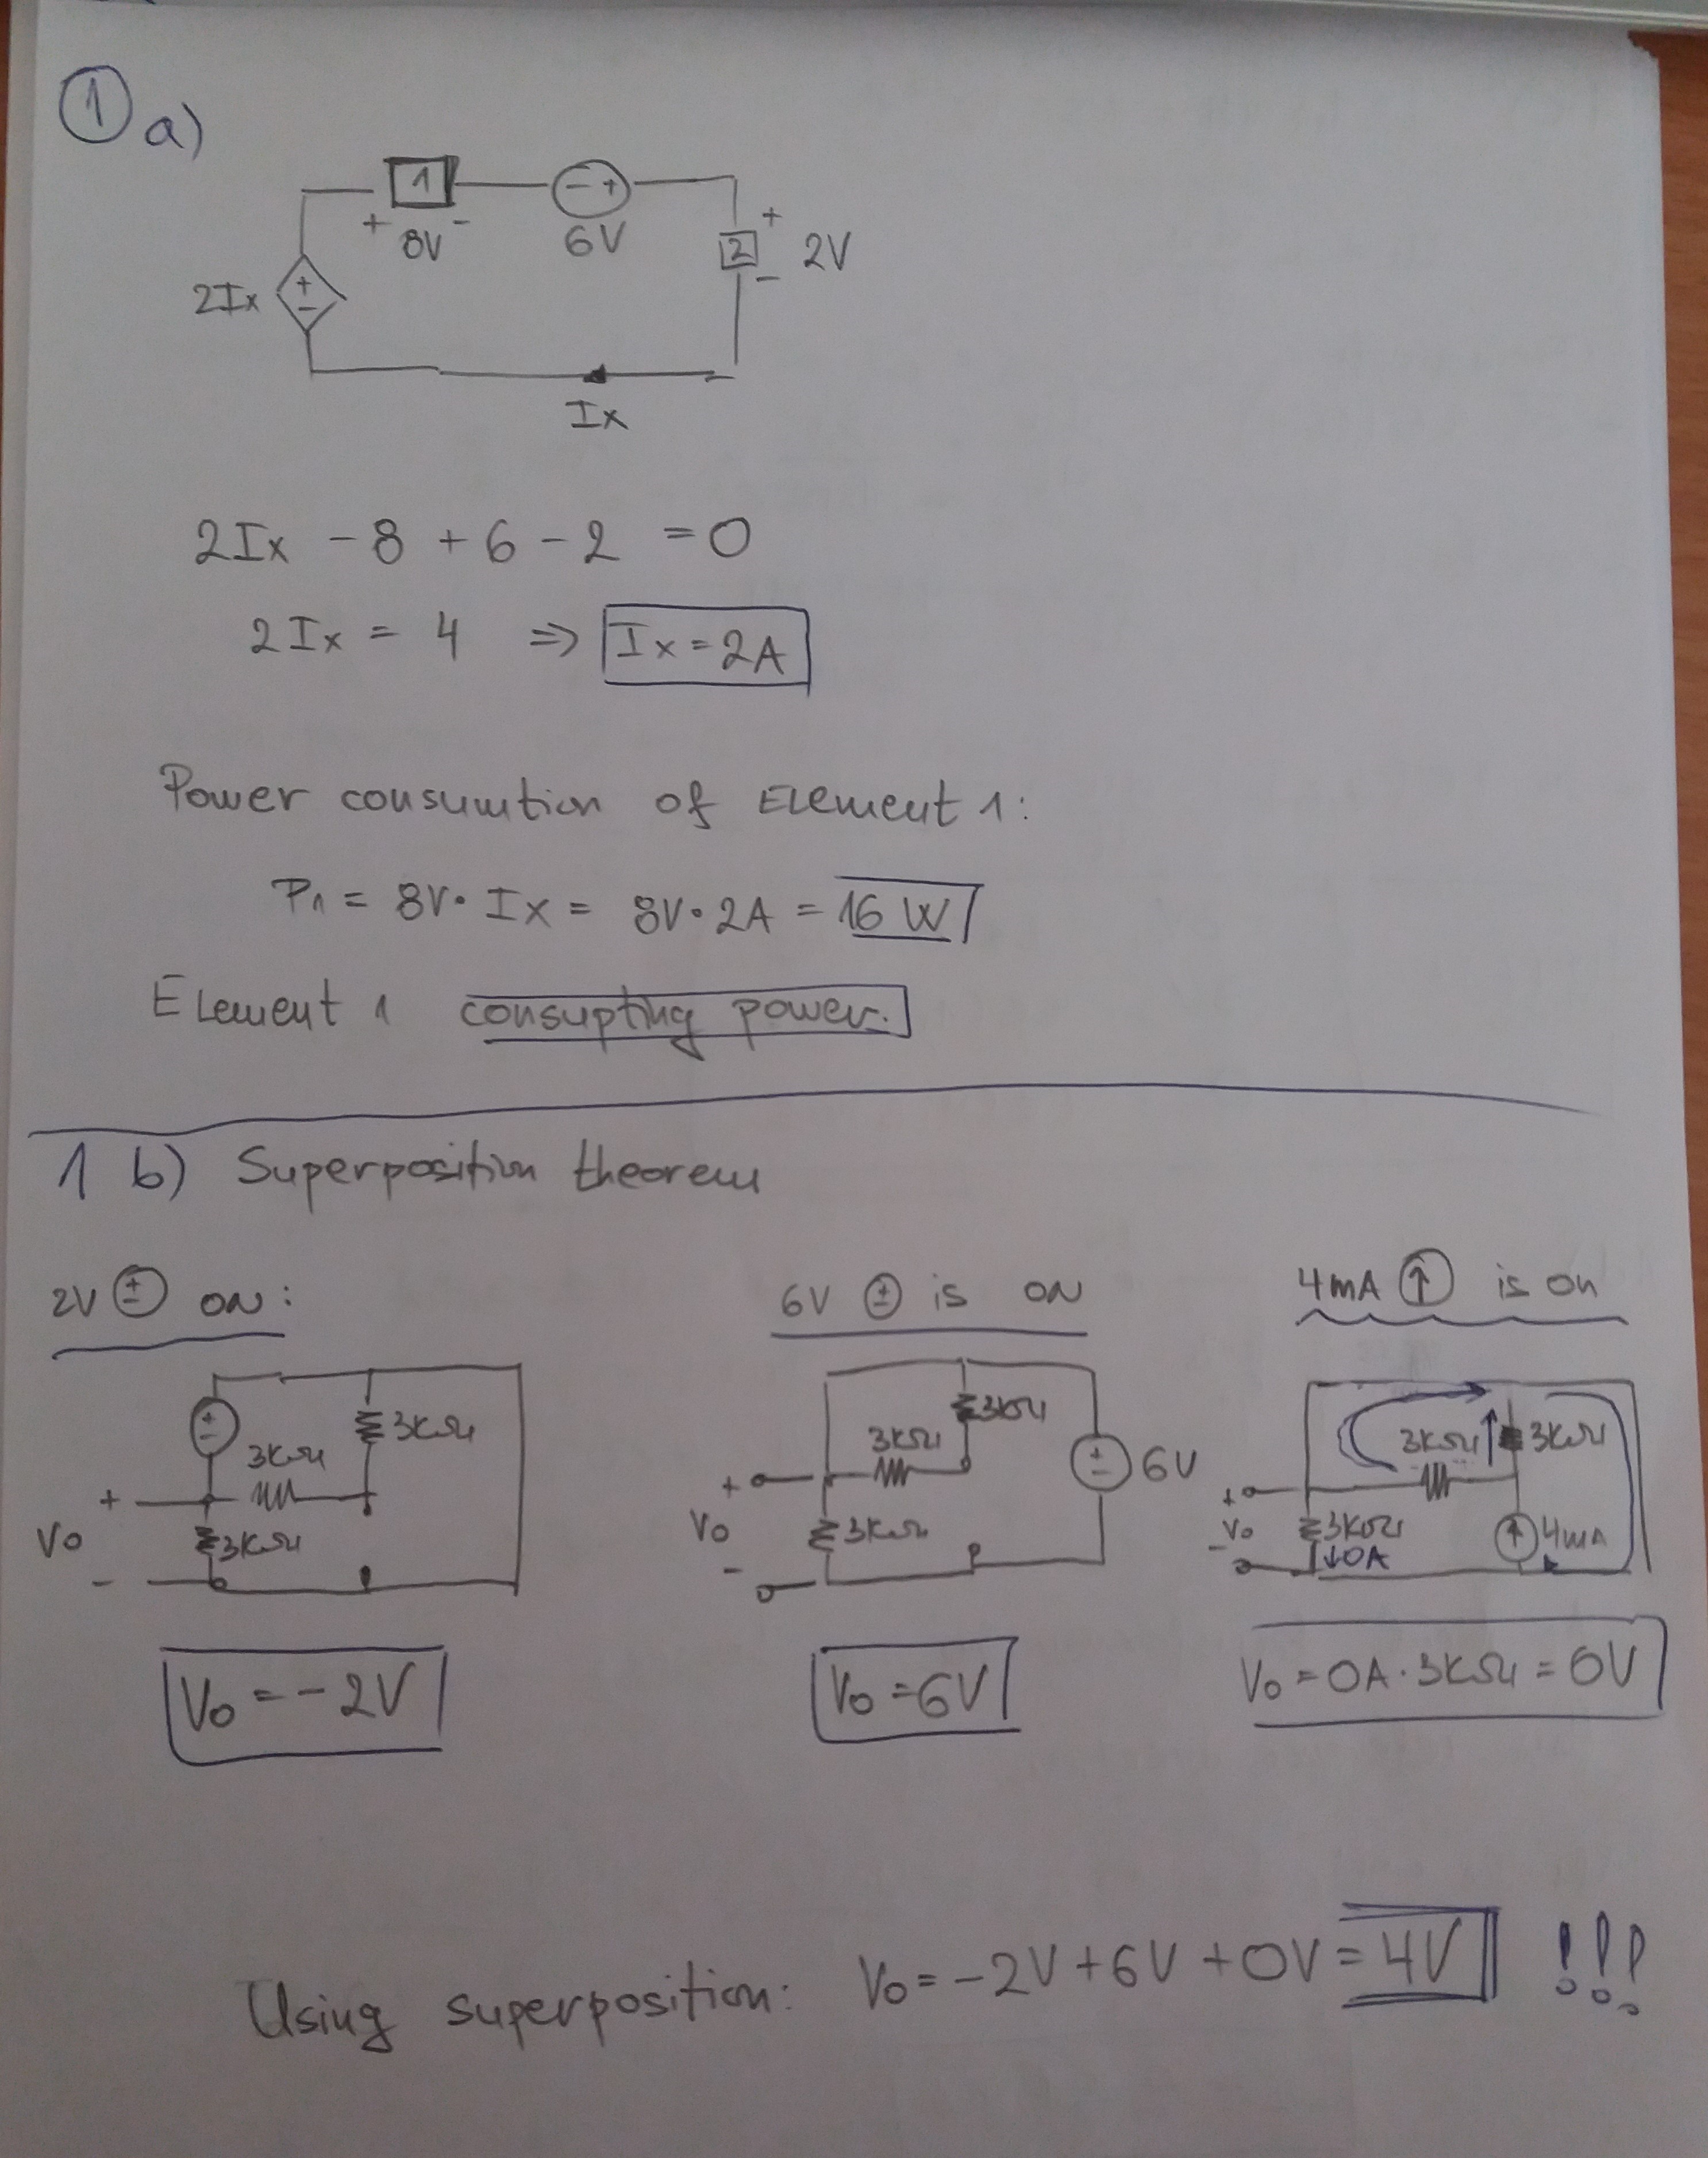 ① a)
1
- +
+ 8V -
6V
+
2
2V
-
2Ix
+
-
Ix
2Ix - 8 + 6 - 2 = 0
2Ix = 4 ⇒ Ix = 2A
Power consumtion of Element 1:
P1 = 8V · Ix = 8V · 2A = 16 W
Element 1 consupting power.
1 b) Superposition theorem
2V ± ON :
±
3KΩ
3KΩ
+
Vo
3KΩ
-
Vo = -2V
6V ± is ON
3KΩ
3KΩ
± 6V
+
Vo
3KΩ
-
Vo = 6V
4mA ↑ is on
3KΩ
3KΩ
+
Vo
3KΩ
4mA
-
↓0A
Vo = 0A · 3KΩ = 0V
Using superposition: Vo = -2V + 6V + 0V = 4V !!!